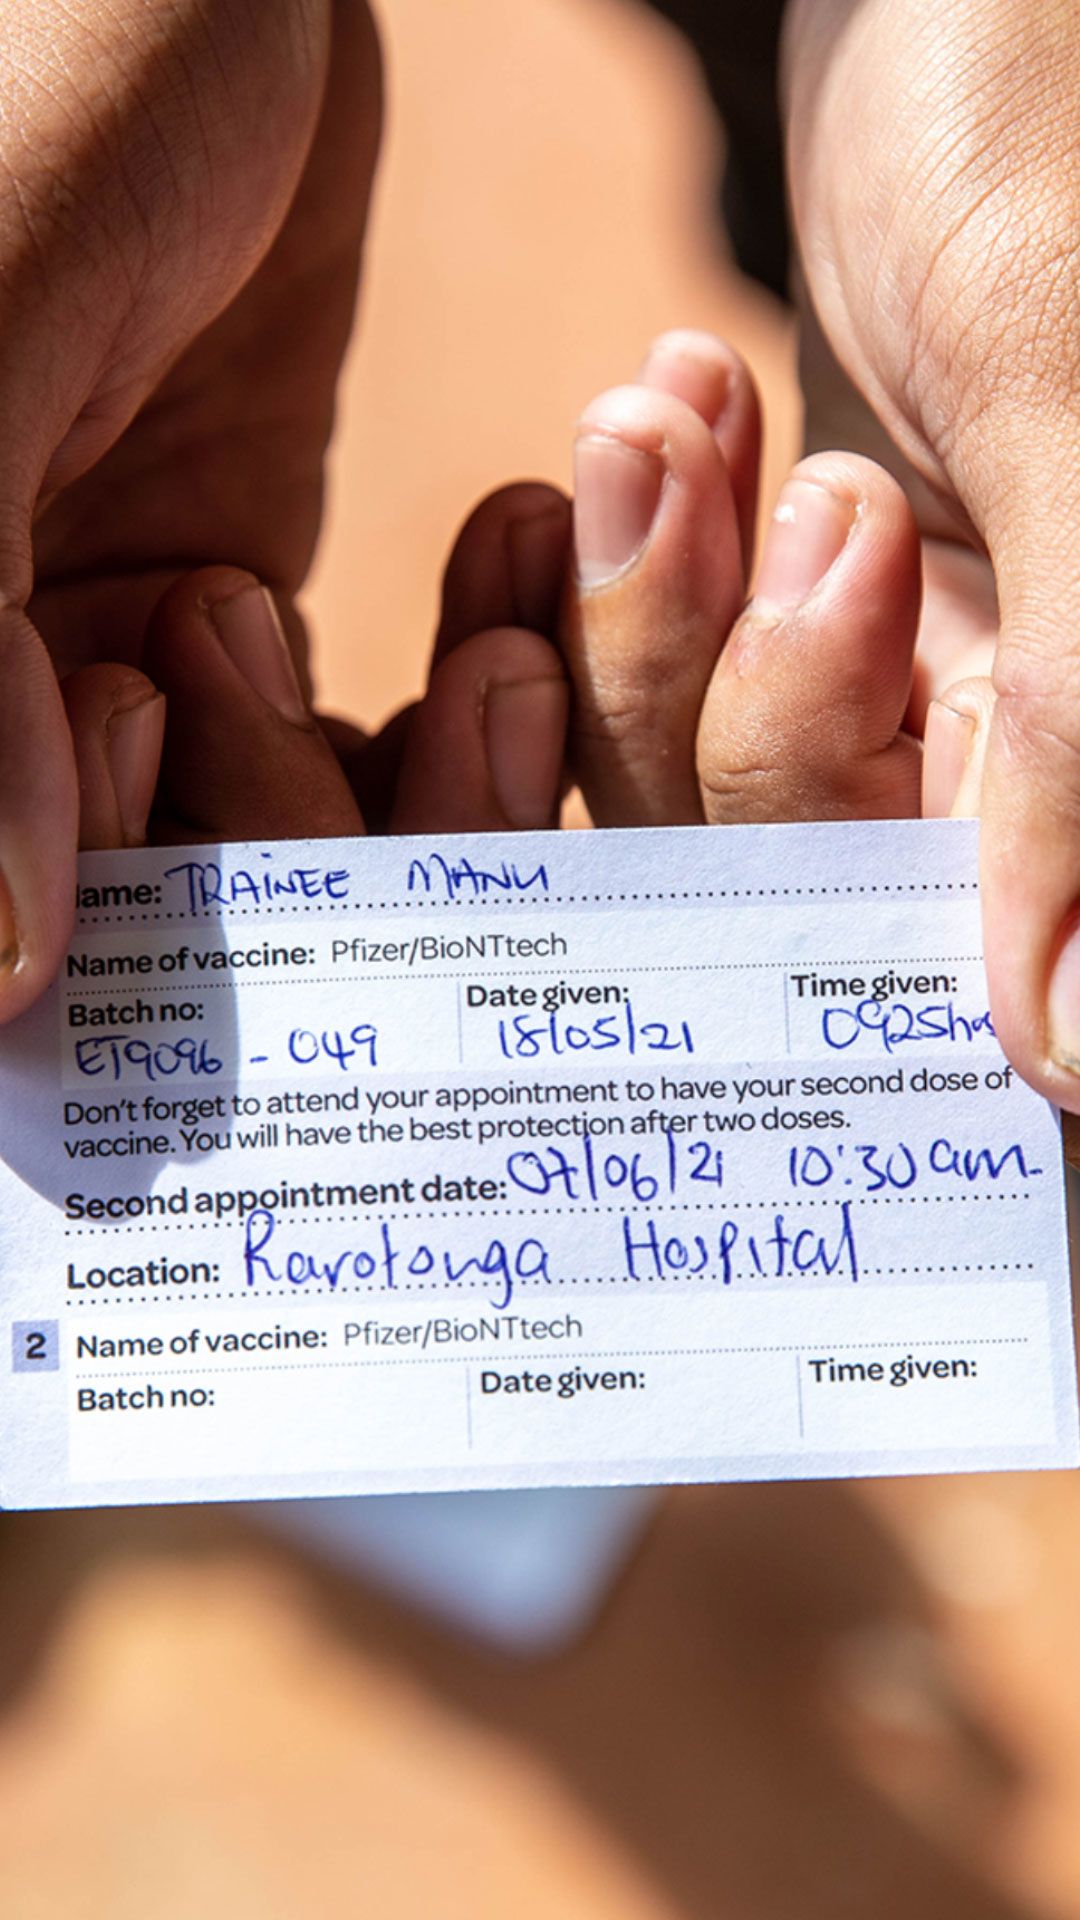 ame: TRAINEE MANU
Name of vaccine: Pfizer/BioNTtech
Batch no: Date given: Time given:
ET9096 - 049 18/05/21 0925hrs
Don't forget to attend your appointment to have your second dose of
vaccine. You will have the best protection after two doses.
Second appointment date: 07/06/21 10:30 am.
Location: Rarotonga Hospital
2 Name of vaccine: Pfizer/BioNTtech
Batch no: Date given: Time given: